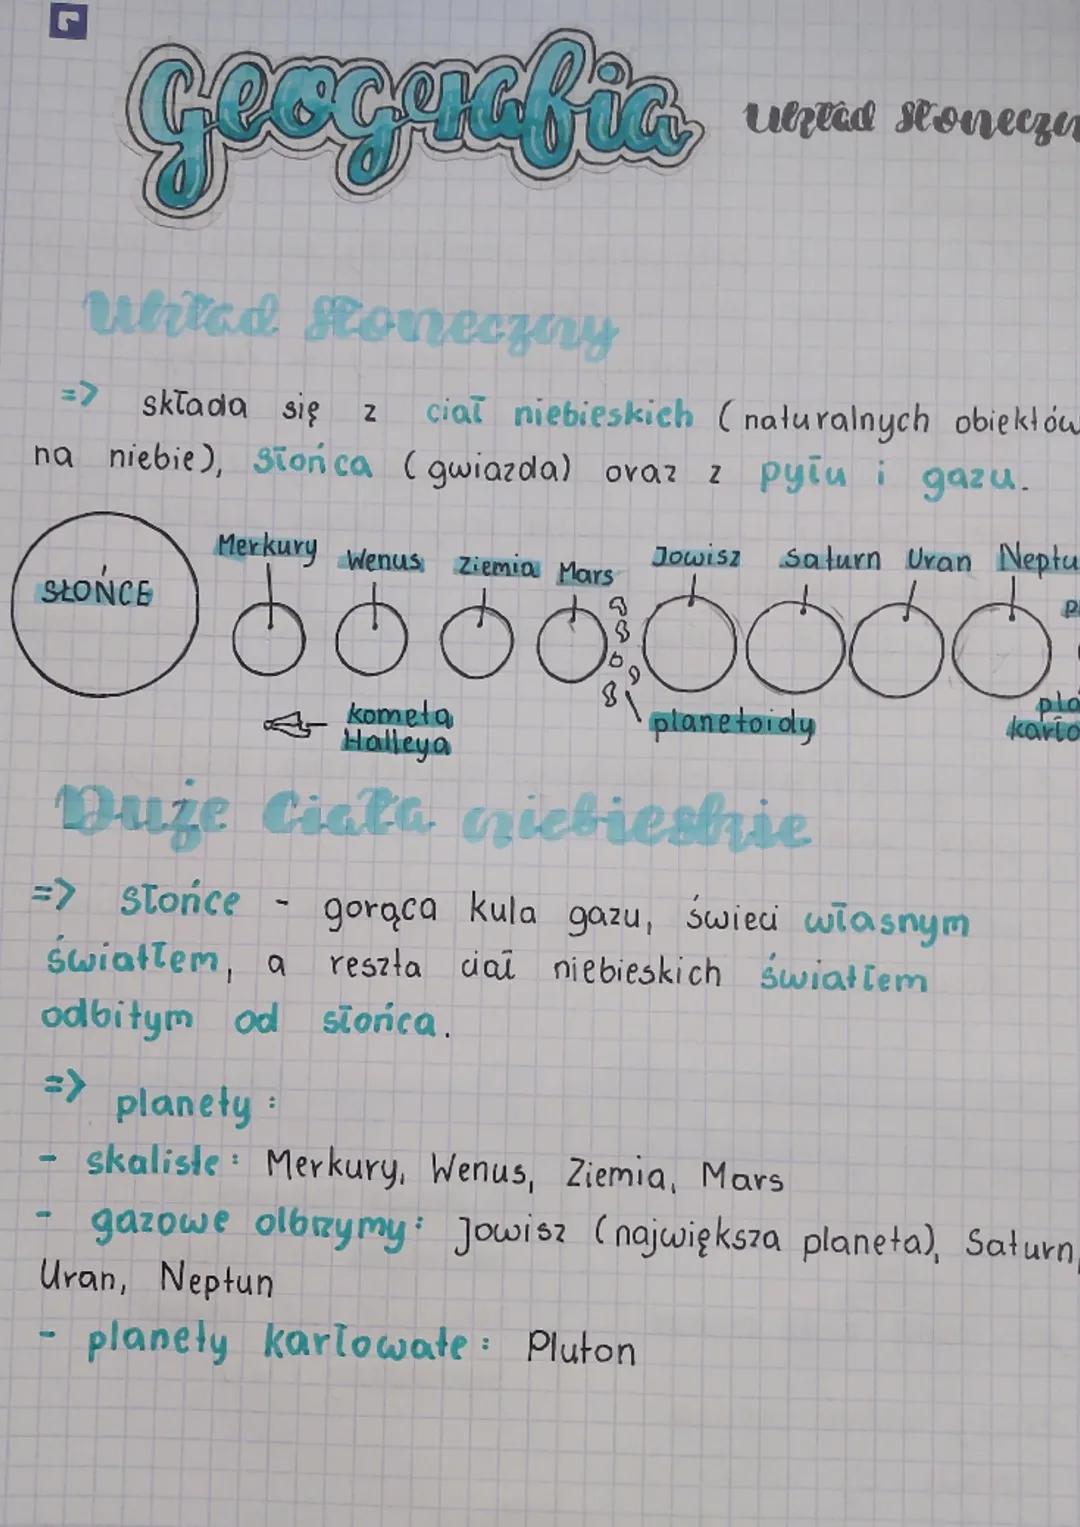 geografia układ słoneczn
układ słoneczny
=> składa się z ciał niebieskich (naturalnych obiektów
na niebie), słońca (gwiazda) oraz z pyłu i gazu.
SŁOŃCE Merkury Wenus Ziemia Mars Jowisz Saturn Uran Neptu
kometa
Halleya
planetoidy
pla
karło
Duże Ciała niebieskie
=> słońce - gorąca kula gazu, świeci własnym
światłem, a reszta ciał niebieskich światłem
odbitym od słońca.
=> planety:
- skaliste: Merkury, Wenus, Ziemia, Mars
- gazowe olbrzymy: Jowisz (największa planeta), Saturn,
Uran, Neptun
- planety karłowate: Pluton